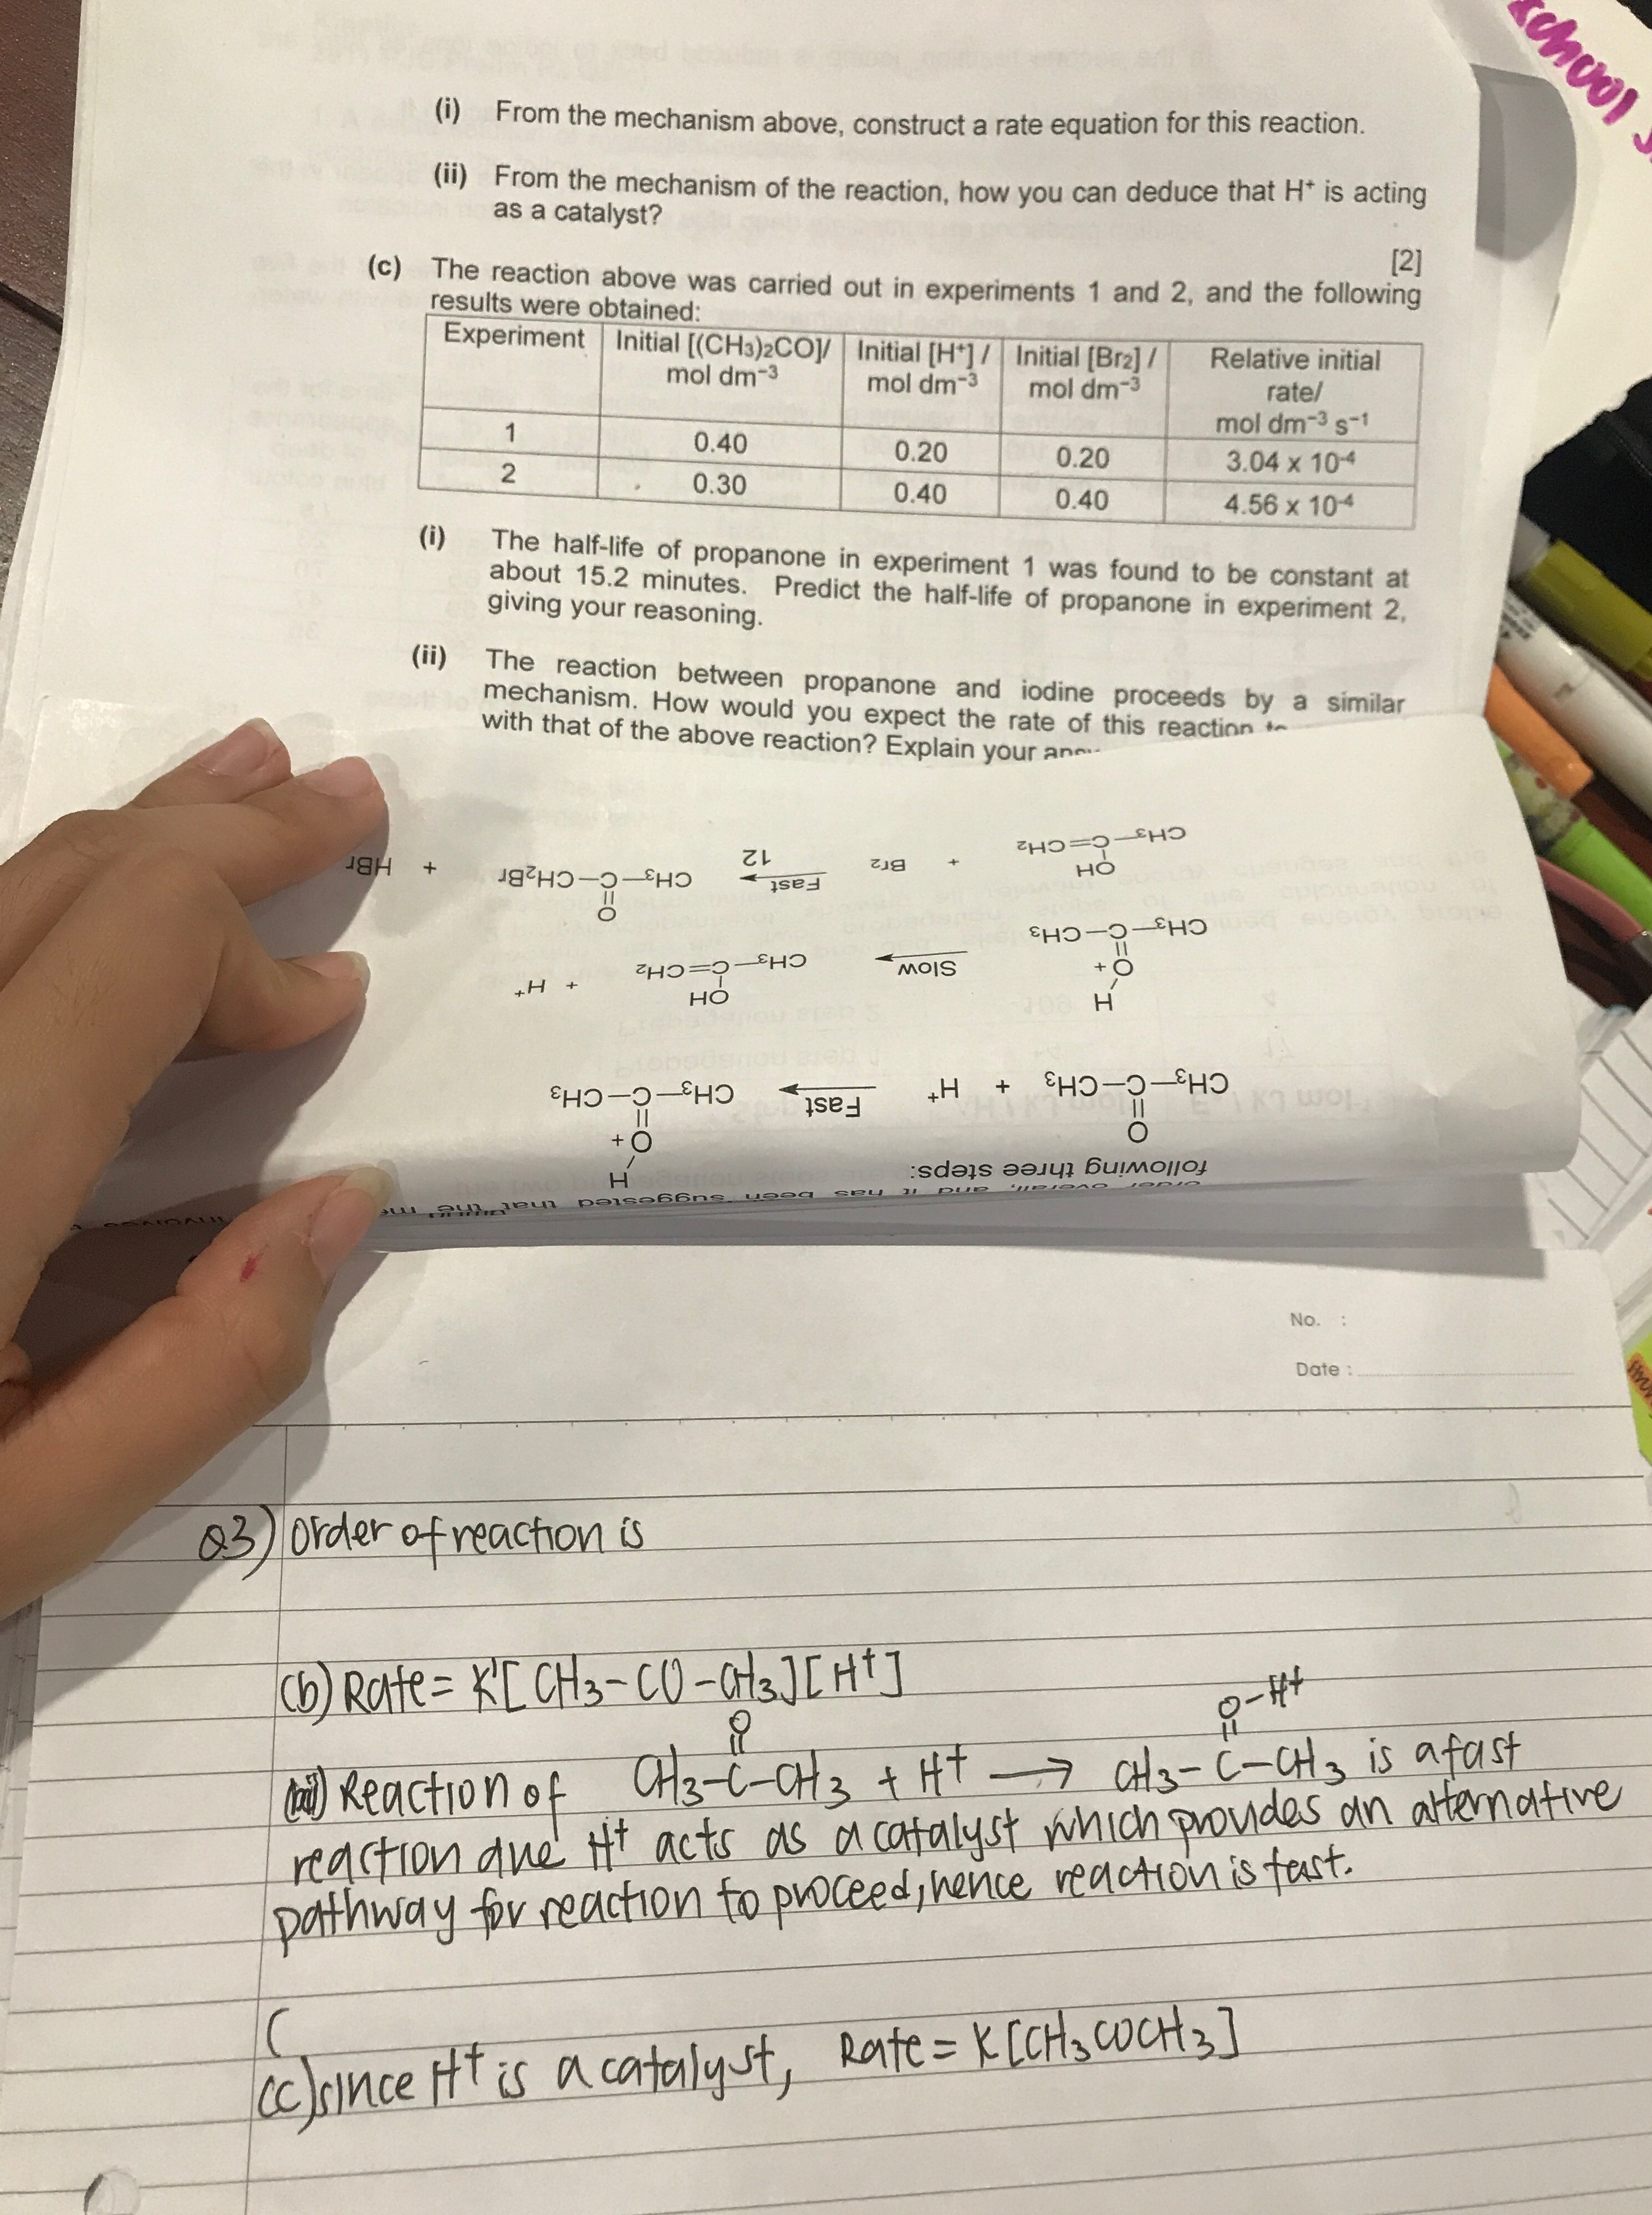 school
(i) From the mechanism above, construct a rate equation for this reaction.
(ii) From the mechanism of the reaction, how you can deduce that H⁺ is acting
as a catalyst?
[2]
(c) The reaction above was carried out in experiments 1 and 2, and the following
results were obtained:
Experiment Initial [(CH₃)₂CO]/ mol dm⁻³ Initial [H⁺] / mol dm⁻³ Initial [Br₂] / mol dm⁻³ Relative initial rate/ mol dm⁻³ s⁻¹
1 0.40 0.20 0.20 3.04 x 10⁻⁴
2 0.30 0.40 0.40 4.56 x 10⁻⁴
(i) The half-life of propanone in experiment 1 was found to be constant at
about 15.2 minutes. Predict the half-life of propanone in experiment 2,
giving your reasoning.
(ii) The reaction between propanone and iodine proceeds by a similar
mechanism. How would you expect the rate of this reaction
with that of the above reaction? Explain your
order overall, and it has been suggested that the
following three steps:
O H
CH₃–C–CH₃ + H⁺ Fast CH₃–C–CH₃ O +
H
O +
CH₃–C–CH₃ Slow CH₃–C=CH₂ OH + H⁺
OH
CH₃–C=CH₂ + Br₂ Fast CH₃–C–CH₂Br O + HBr
12
No. :
Date :
Q3) Order of reaction is
(b) Rate = K'[CH₃-CO-CH₃][H⁺]
O O-H⁺
(ii) Reaction of CH₃-C-CH₃ + H⁺ → CH₃-C-CH₃ is a fast
reaction due H⁺ acts as a catalyst which provides an alternative
pathway for reaction to proceed, hence reaction is fast.
(
(c) since H⁺ is a catalyst, Rate = K[CH₃COCH₃]